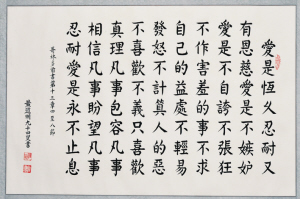 愛是恆久忍耐又
有恩慈愛是不嫉妒
愛是不自誇不張狂
不作害羞的事不求
自己的益處不輕易
發怒不計算人的惡
不喜歡不義只喜歡
真理凡事包容凡事
相信凡事盼望凡事
忍耐愛是永不止息
哥林多前書第十三章四至八節